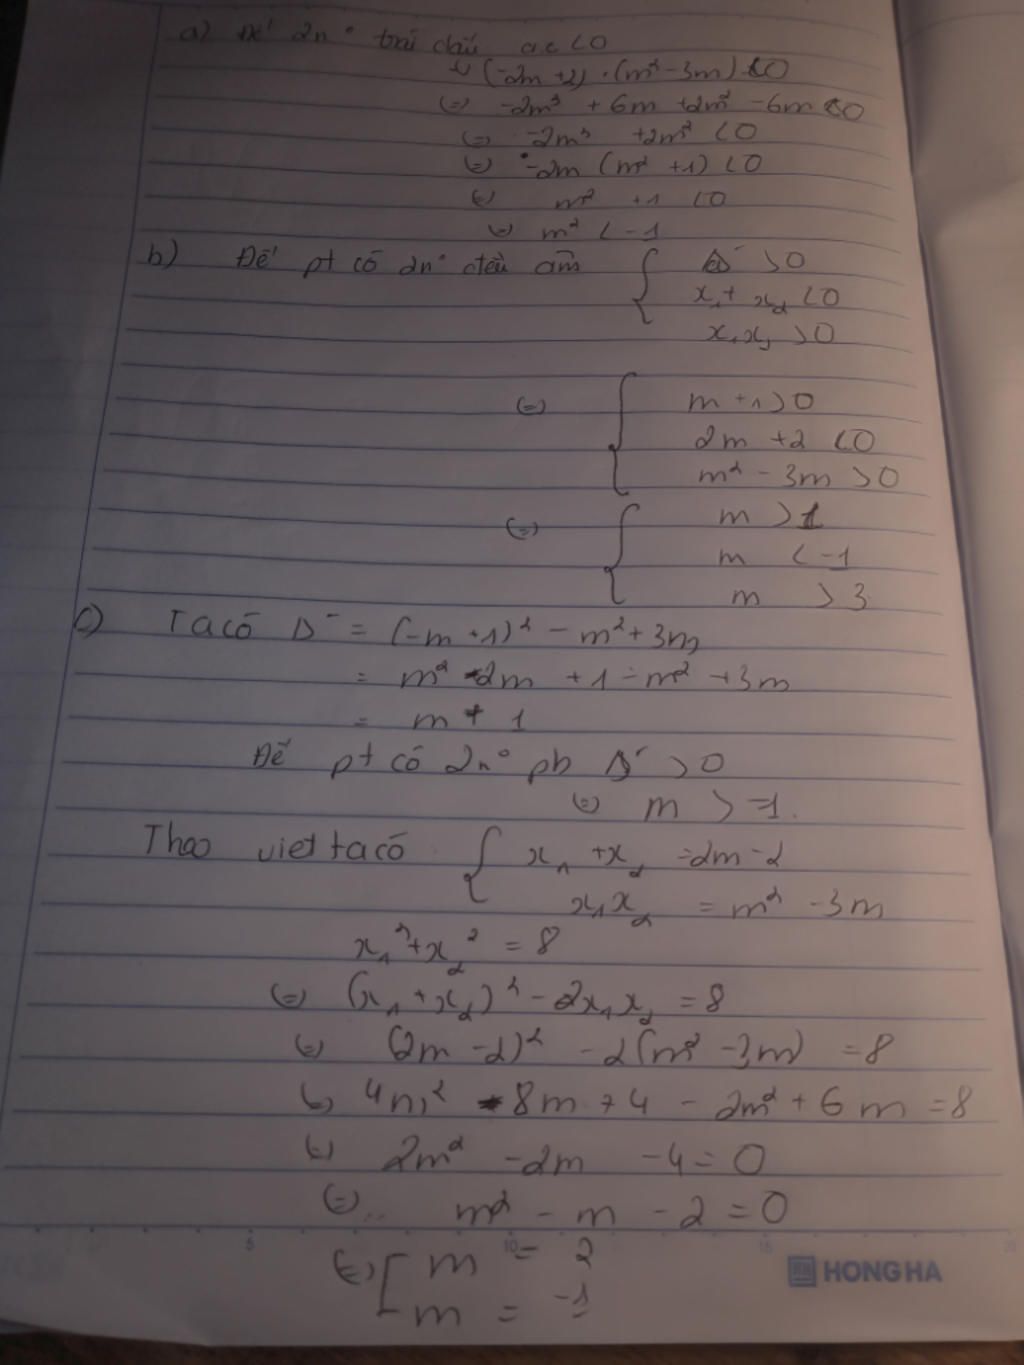 a) Để 2n° trái dấu ac < 0
(=) (-2m + 2) . (m² - 3m) < 0
(=) -2m³ + 6m + 2m² - 6m < 0
(=) -2m³ + 2m² < 0
(=) -2m (m² + 1) < 0
(=) m² + 1 < 0
(=) m² < -1
b) Để pt có 2n° đều âm { Δ' > 0
x₁ + x₂ < 0
x₁x₂ > 0
(=) { m + 1 > 0
2m + 2 < 0
m² - 3m > 0
(=) { m > 1
m < -1
m > 3
c) Ta có Δ' = (-m + 1)² - m² + 3m
= m² - 2m + 1 - m² + 3m
= m + 1
Để pt có 2n° pb Δ' > 0
(=) m > -1.
Theo viet ta có { x₁ + x₂ = 2m - 2
x₁x₂ = m² - 3m
x₁² + x₂² = 8
(=) (x₁ + x₂)² - 2x₁x₂ = 8
(=) (2m - 2)² - 2(m² - 3m) = 8
(=) 4m² - 8m + 4 - 2m² + 6m = 8
(=) 2m² - 2m - 4 = 0
(=) m² - m - 2 = 0
5 10 15 20
(=) [ m = 2
HONG HA
m = -1